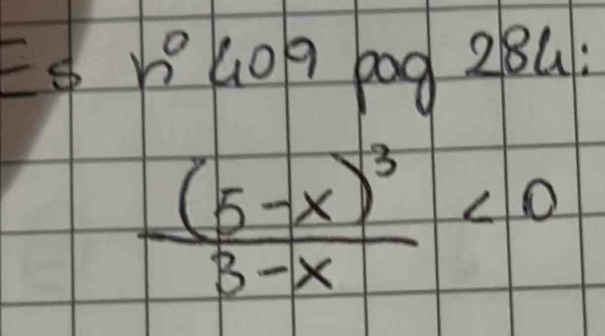 Es n° 409 pag 284:
(5-x)³
3-x
< 0